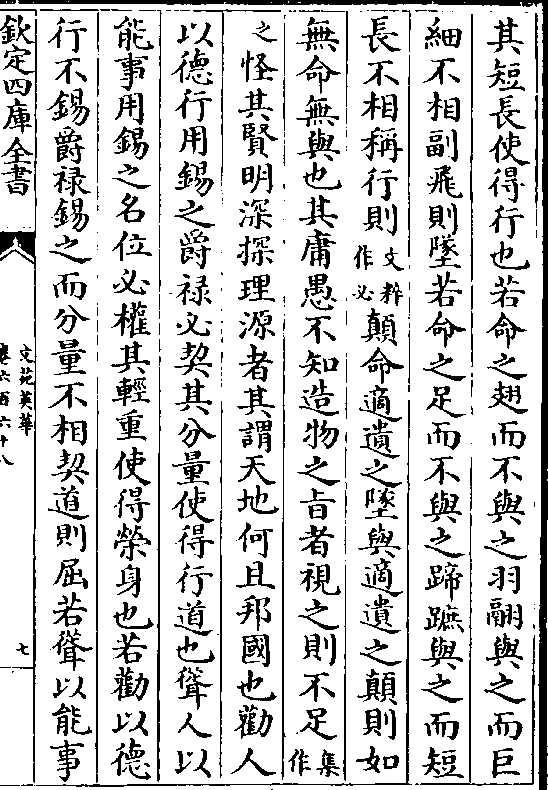 其短長使得行也若命之翅而不與之羽翮與之而巨
細不相副飛則墜若命之足而不與之蹄蹠與之而短
長不相稱行則文粹作必顛命適遺之墜與適遺之顛則如
無命無與也其庸愚不知造物之旨者視之則不足集作
之怪其賢明深探理源者其謂天地何且邦國也勸人
以德行用錫之爵祿必契其分量使得行道也聳人以
能事用錫之名位必權其輕重使得榮身也若勸以德
行不錫爵祿錫之而分量不相契道則屈若聳以能事
欽定四庫全書
文苑英華
卷六百六十八
七